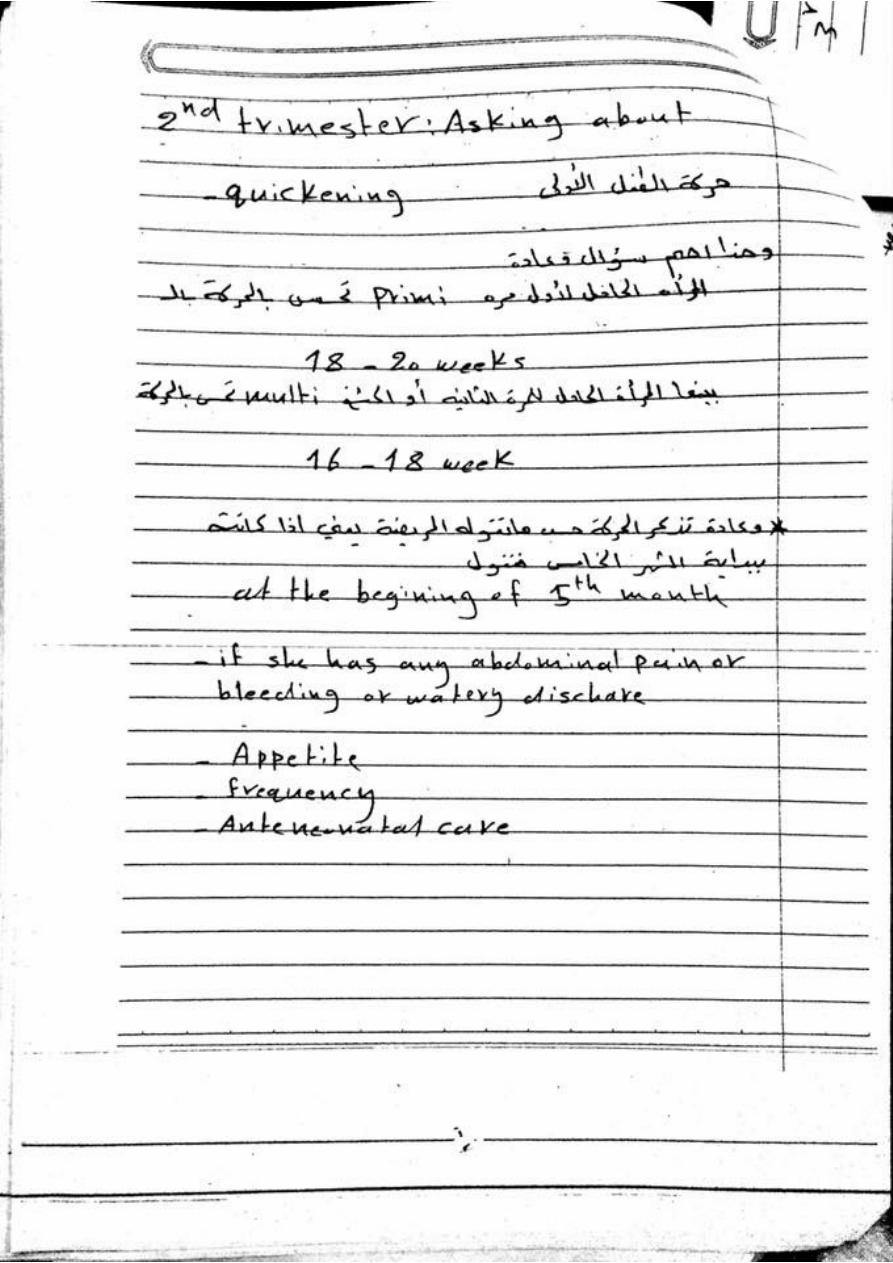 2nd trimester: Asking about
- quickening حركة الطفل الأولى
وهنا اهم سؤال فعادة
المرأه الحامل لأول مره primi تحس بالحركة بالـ
18 - 20 weeks
بينما المرأة الحامل للمرة الثانيه أو اكثر multi تحس بالحركة
16 - 18 week
* وعادة تذكر الحركة حسب ماتقوله المريضة يعني اذا كانت
ببداية الشهر الخامس فنقول
at the begining of 5th month
- if she has any abdominal pain or
bleeding or watery dischare
- Appetite
- frequency
- Anteneonatal care